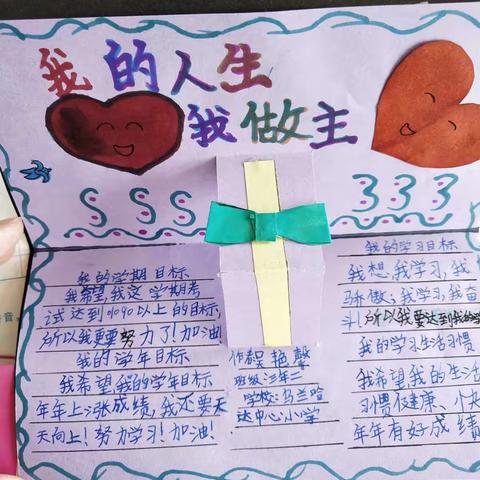 我的人生
我做主
SSS
333
我的学期目标
我希望,我这学期考
试达到90以上的目标,
所以我更要努力了!加油!
我的学年目标
我希望我的学年目标
年年上涨成绩,我还要天
天向上!努力学习!加油!
作者:吴艳馨
班级:三年二
学校:马兰哈
达中心小学
我的学习目标
我想,我学习,我
骄傲,我学习,我奋
斗!所以我要达到我的学
我的学习生活习惯
我希望我的生活
习惯健康、小
年年有好成绩